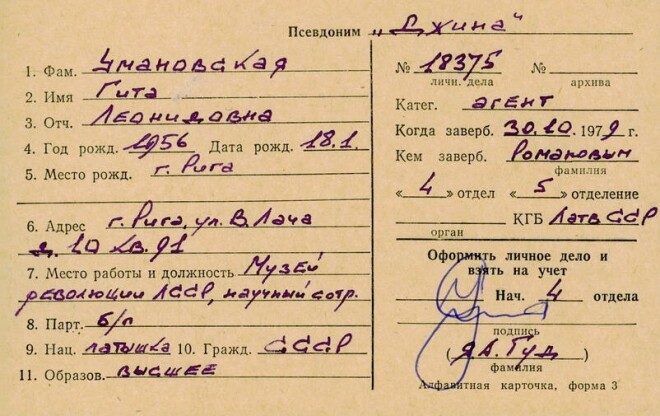 Псевдоним „Джина“
1. Фам. Умановская
2. Имя Гита
3. Отч. Леонидовна
4. Год рожд. 1956 Дата рожд. 18.1.
5. Место рожд. г. Рига
6. Адрес г. Рига, ул. В. Лача
д. 10 кв. 91
7. Место работы и должность Музей
революции ЛССР, научный сотр.
8. Парт. б/п
9. Нац. латышка 10. Гражд. СССР
11. Образов. высшее
№ 18375 №
личн. дела архива
Катег. агент
Когда заверб. 30.10. 1979 г.
Кем заверб. Романовым
фамилия
«4» отдел «5» отделение
КГБ Латв ССР
орган
Оформить личное дело и
взять на учет
Нач. 4 отдела
подпись
(Я.А. Гуд)
фамилия
Алфавитная карточка, форма 3